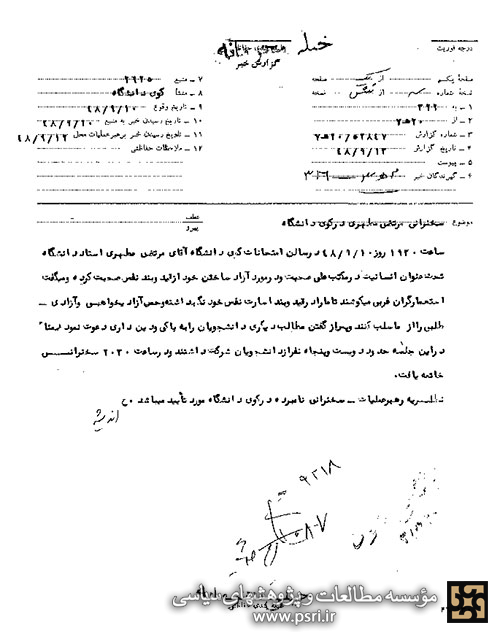 خیلی محرمانه
درجه فوریت
طبقه‌بندی حفاظتی
گزارش خبر
صفحهٔ یکم از یک صفحه
نسخهٔ شماره از شش نسخه
۱ – به ۳۴۱
۲ – از ۲۰ﻫ۷
۳ – شماره گزارش ۲۰/۵۳۸۴۷ﻫ۷
۴ – تاریخ گزارش ۴۸/۹/۱۳
۵ – پیوست
۶ – گیرندگان خبر ۳۱۶
۷ – منبع ۲۹۲۵
۸ – منشأ کوی دانشگاه
۹ – تاریخ وقوع ۴۸/۹/۱۰
۱۰ – تاریخ رسیدن خبر به منبع ۴۸/۹/۱۰
۱۱ – تاریخ رسیدن خبر برهبر عملیات محل ۴۸/۹/۱۲
۱۲ – ملاحظات حفاظتی
موضوع سخنرانی مرتضی مطهری در کوی دانشگاه
عطف
پیرو
ساعت ۱۹۳۰ روز ۴۸/۹/۱۰ در سالن امتحانات کوی دانشگاه آقای مرتضی مطهری استاد دانشگاه
تحت عنوان انسانیت در مکتب علی صحبت و در مورد آزاد ساختن خود از قید و بند نفس صحبت کرده و میگفت
استعمارگران غربی میکوشند تا ما را در قید و بند اسارت نفس خود نگهداشته و حس آزاد بخواهیس و آزادی –
طلبی را از ما سلب کنند و پس از گفتن مطالب دیگری دانشجویان را به پاکی و دین داری دعوت نمود ضمناً
در این جلسه حدود دویست و پنجاه نفر از دانشجویان شرکت داشتند و در ساعت ۲۰۳۰ سخنرانیش
خاتمه یافت.
نظریه رهبر عملیات – سخنرانی نامبرده در کوی دانشگاه مورد تأیید میباشد ح
اندیشه
۹۲۱۸
۸-۷
مؤسسه مطالعات و پژوهشهای سیاسی
www.psri.ir